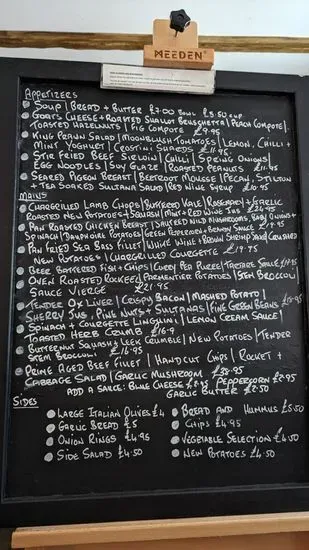 MEEDEN
APPETIZERS
SOUP | BREAD + BUTTER £7.00 BOWL £5.50 CUP
GOATS CHEESE + ROASTED SHALLOT BRUSCHETTA | PEACH COMPOTE |
TOASTED HAZELNUTS | FIG COMPOTE £9.95
KING PRAWN SALAD | MOONBLUSH TOMATOES | LEMON, CHILLI +
MINT YOGHURT | CROSTINI SHARDS £11.95
STIR FRIED BEEF SIRLOIN | CHILLI | SPRING ONIONS |
EGG NOODLES | SOY GLAZE | ROASTED PEANUTS £11.95
SEARED PIGEON BREAST | BEETROOT MOUSSE | PECAN, STILTON
+ TEA SOAKED SULTANA SALAD | RED WINE SYRUP £10.95
MAINS
CHARGRILLED LAMB CHOPS | BUTTERED KALE | ROSEMARY + GARLIC
ROASTED NEW POTATOES + SQUASH | MINT + RED WINE JUS £24.95
PAN ROASTED CHICKEN BREAST | SMOKED WILD MUSHROOMS, BABY ONIONS +
SPINACH | DAUPHINE POTATOES | GREEN PEPPERCORN + SAUCE £19.95
PAN FRIED SEA BASS FILLET | WHITE WINE + BROWN SHRIMP CRUSHED
NEW POTATOES | CHARGRILLED COURGETTE £19.95
BEER BATTERED FISH + CHIPS | CURRY PEA PUREE | TARTARE SAUCE
OVEN ROASTED ROCKEFELLER | PARMENTIER POTATOES | STEM BROCCOLI |
SAUCE VIERGE £21.95
TENDER OX LIVER | CRISPY BACON | MASHED POTATO |
SHERRY JUS, PINE NUTS + SULTANAS | FINE GREEN BEANS £18.95
SPINACH + COURGETTE LINGUINI | LEMON CREAM SAUCE |
TOASTED HERB CRUMB £16.9
BUTTERNUT SQUASH + LEEK CRUMBLE | NEW POTATOES | TENDER
STEM BROCCOLI £16.95
PRIME AGED BEEF FILLET | HANDCUT CHIPS | ROCKET +
CABBAGE SALAD | GARLIC MUSHROOM £38.95
ADD A SAUCE: BLUE CHEESE £2.95 PEPPERCORN £2.95
GARLIC BUTTER £2.50
SIDES
LARGE ITALIAN OLIVES £4
GARLIC BREAD £5
ONION RINGS £4.95
SIDE SALAD £4.50
BREAD AND HUMMUS £5.50
CHIPS £4.95
VEGETABLE SELECTION £4.50
NEW POTATOES £4.50